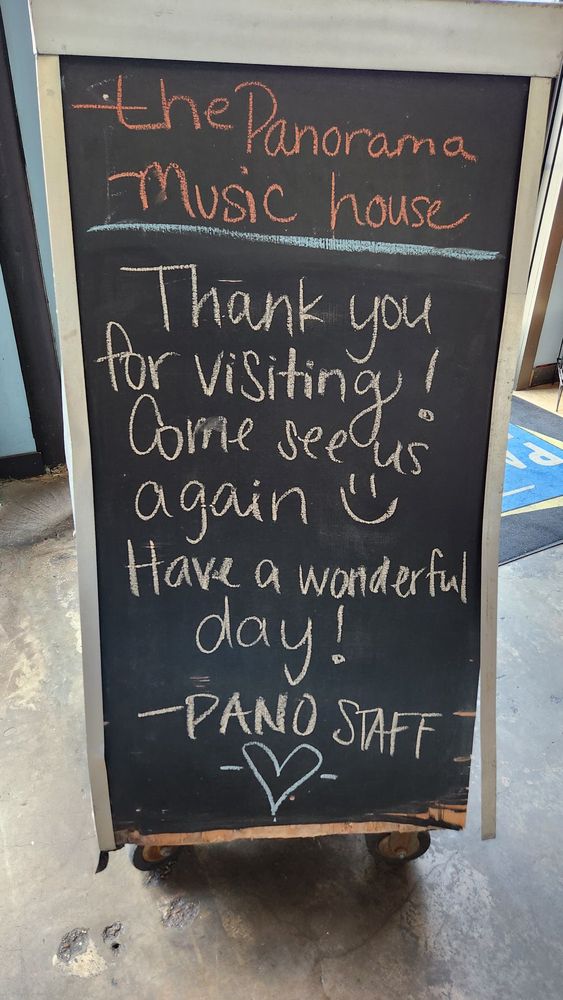 the Panorama
Music house
Thank you
for visiting!
Come see us
again
Have a wonderful
day!
-PANO STAFF